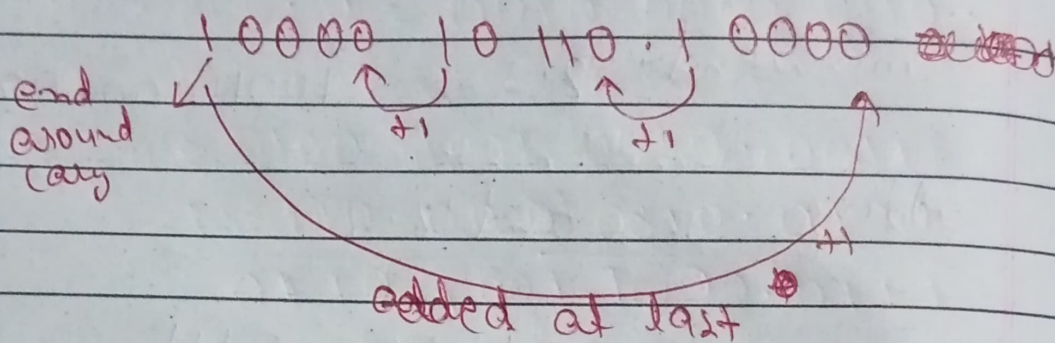 1 0000 10 110 . 1 0000
+1 +1
end
around
cary
+1
added at last